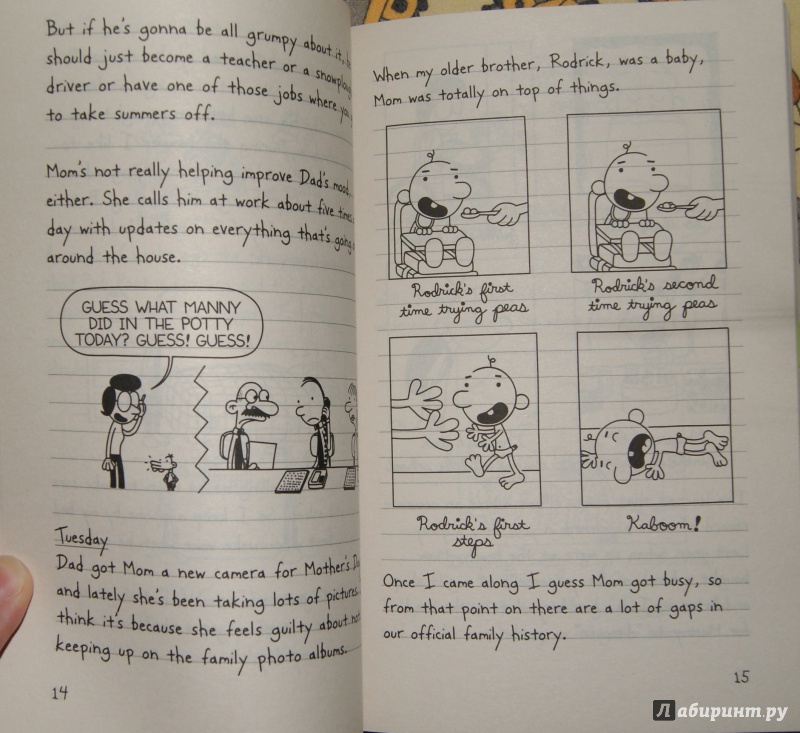 But if he's gonna be all grumpy about it,
should just become a teacher or a snowplough
driver or have one of those jobs where you
to take summers off.
Mom's not really helping improve Dad's mood,
either. She calls him at work about five times
day with updates on everything that's going
around the house.
GUESS WHAT MANNY
DID IN THE POTTY
TODAY? GUESS! GUESS!
Tuesday
Dad got Mom a new camera for Mother's
and lately she's been taking lots of pictures.
think it's because she feels guilty about not
keeping up on the family photo albums.
14
When my older brother, Rodrick, was a baby,
Mom was totally on top of things.
Rodrick's first
time trying peas
Rodrick's second
time trying peas
Rodrick's first
steps
Kaboom!
Once I came along I guess Mom got busy, so
from that point on there are a lot of gaps in
our official family history.
15
Лабиринт.ру